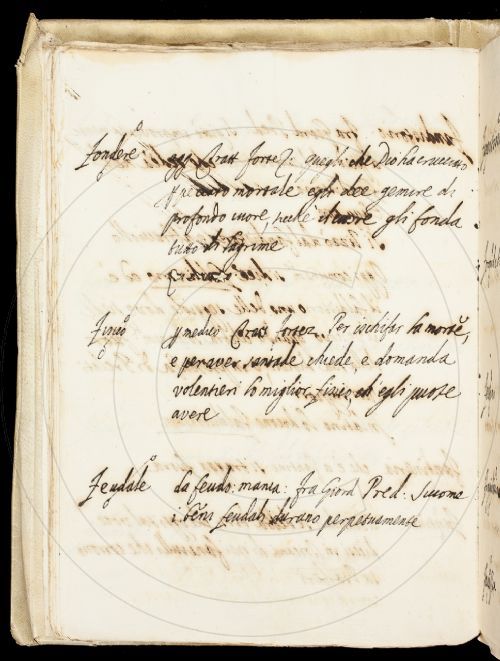 Fondere agg. Tratt. fortez: quegli che Dio ha crucciato
p peccato mortale egli dee gemere di
profondo cuore, sicche il cuore gli fonda
tutto di lagrime
Fisico
p medico Tratt. fortez. Per ischifar la morte,
e per aver sanitade chiede, e domanda
volentieri lo miglior fisico, ch'egli puote
avere
Feudale da feudo: manca: fra Giord. Pred: Siccome
i beni feudali durano perpetuamente